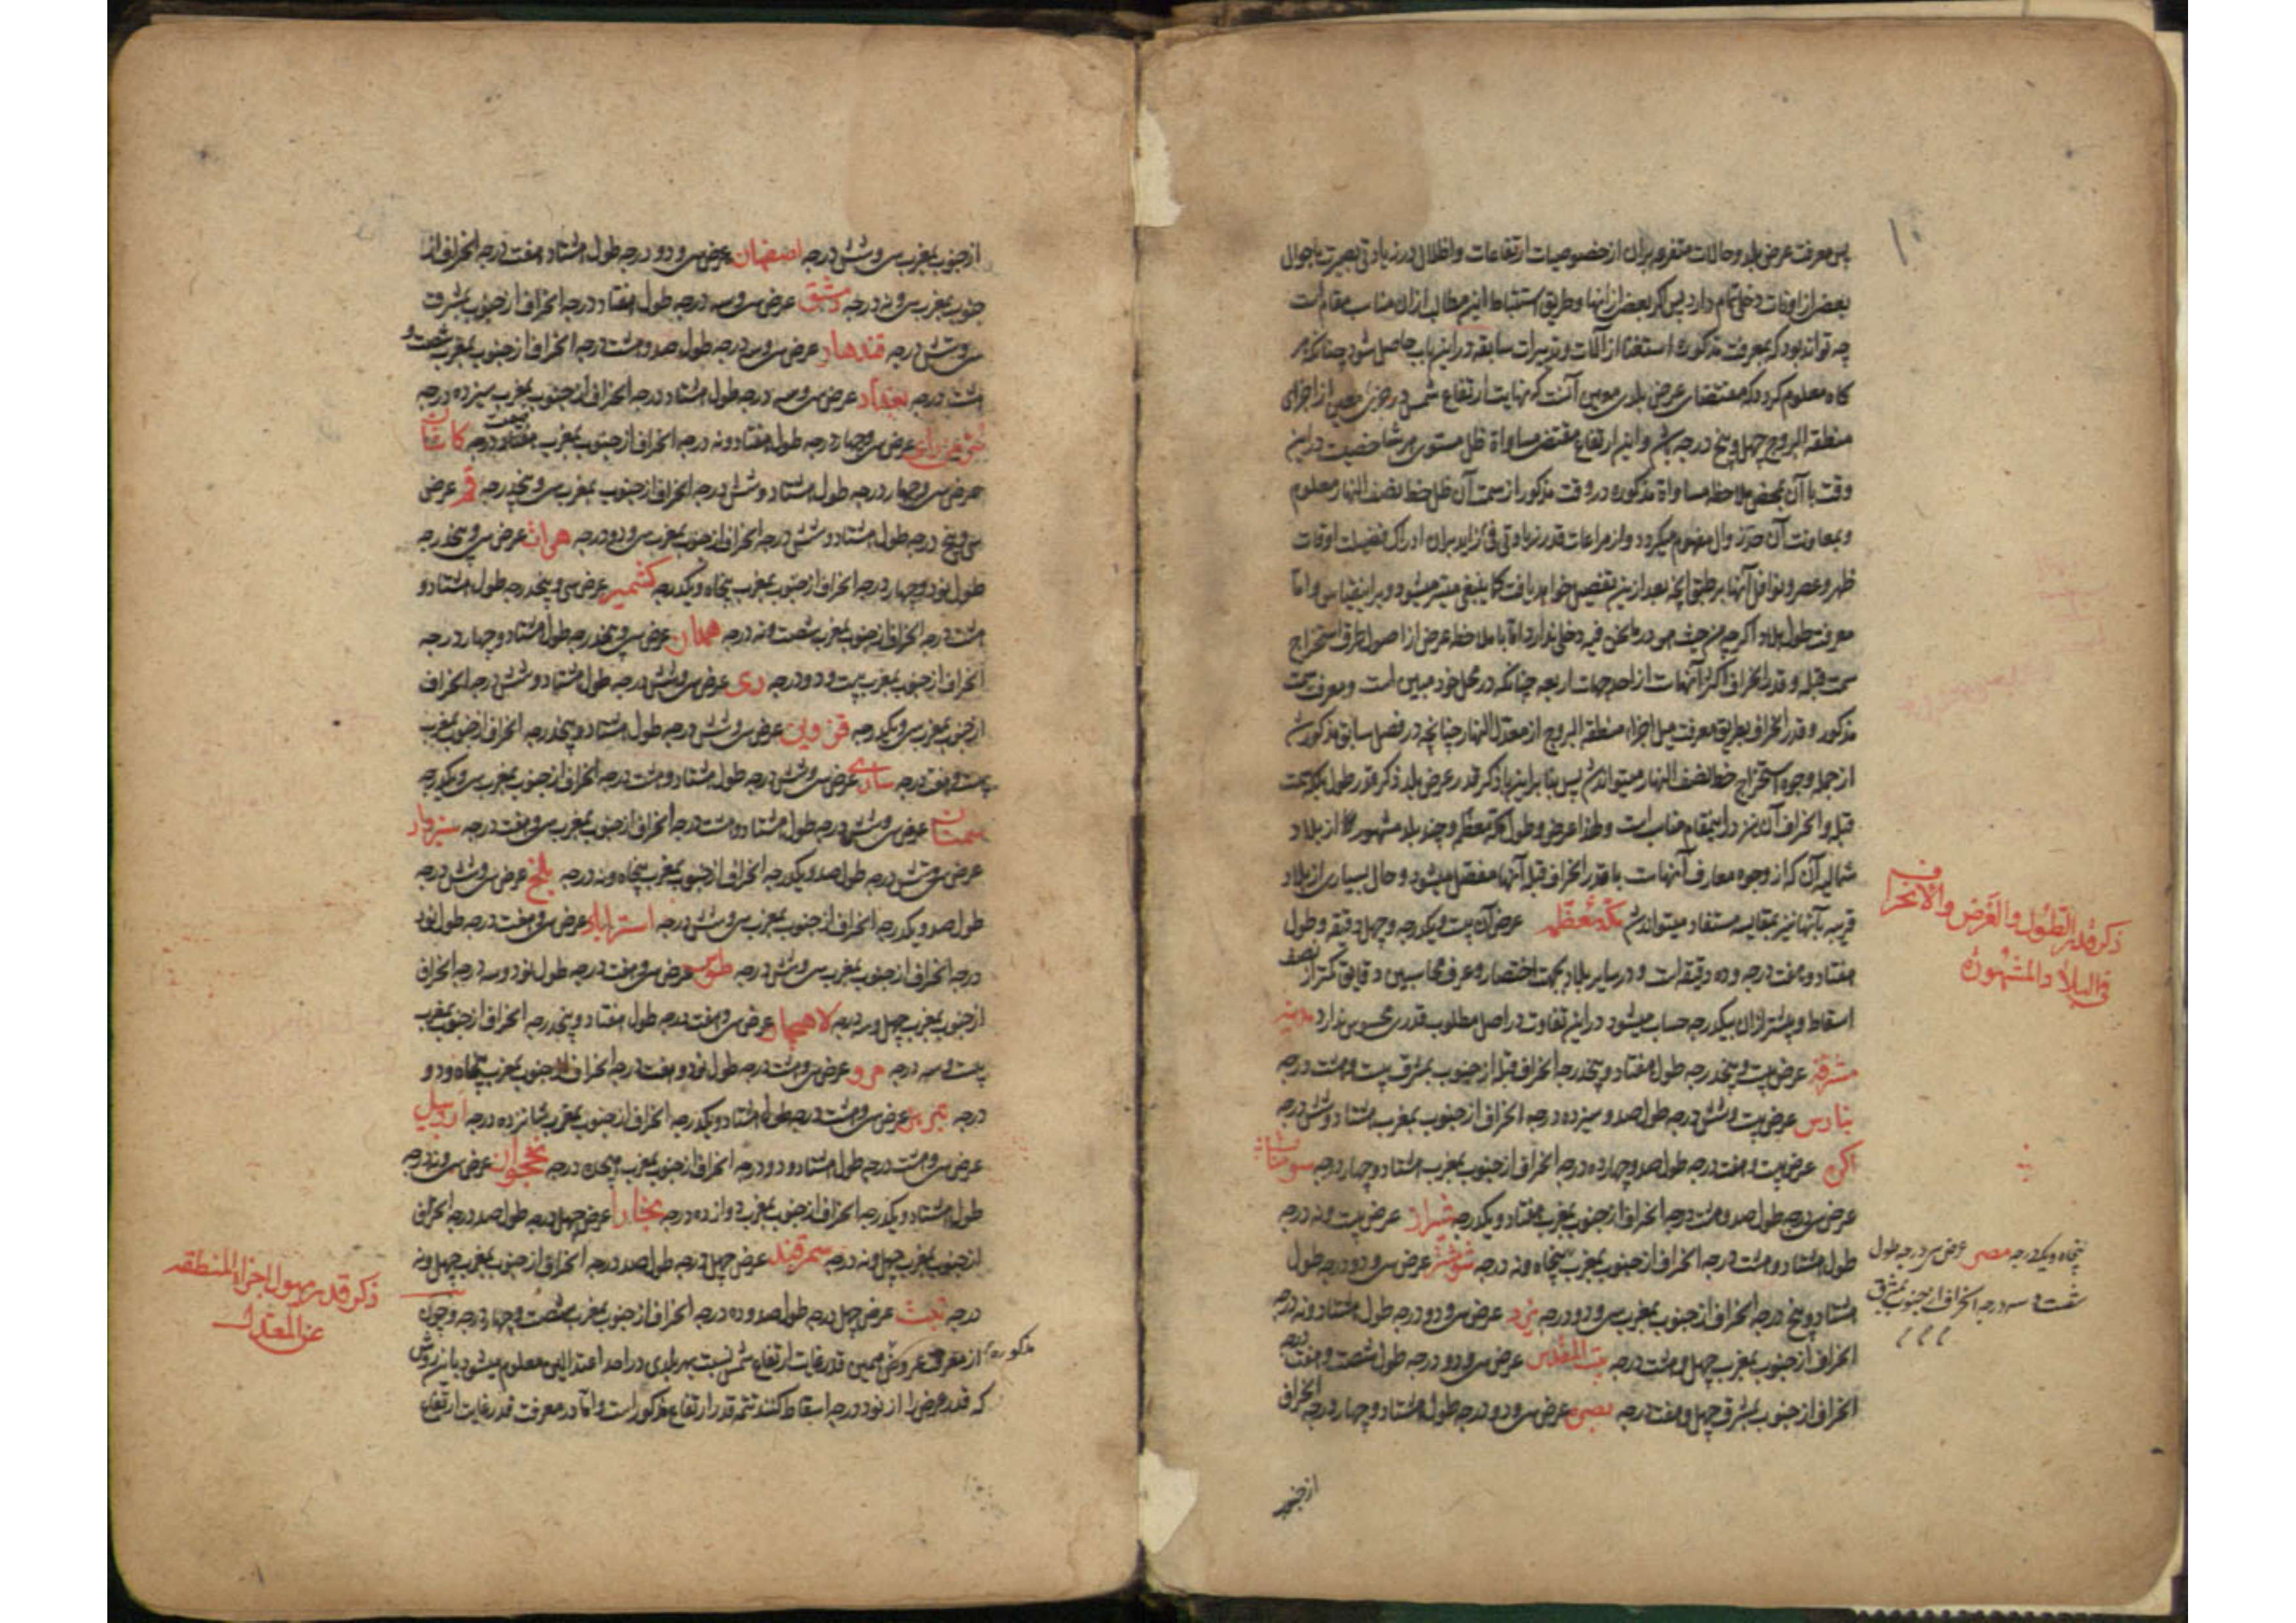 ۱۰
پس معرفت عرض بلد و حالات متفرعه بران از خصوصیات ارتفاعات و اظلال در زیادتی بصیرت باحوال
بعضی از اوقات دخلی تمام دارد پس ذکر بعضی از انها و طریق استنباط این مطالب ازان مناسب مقام است
چه تواند بود که بمعرفت مذکوره استغنا از آلات و تدبیرات سابقه در این باب حاصل شود چنانکه هر
کاه معلوم کردد که مقتضای عرض بلدی معین آنست که نهایت ارتفاع شمس در جزئی معین از اجزای
منطقه البروج چهل و پنج درجه باشد و این ارتفاع مقتضی مساواة ظل مستوی هر شاخصیست در این
وقت با آن بمحض ملاحظه مساواة مذکوره در وقت مذکور از سمت آن ظل خط نصف النهار معلوم
و بمعاونت آن حین زوال مفهوم میکردد و از مراعات قدر زیادتی فئ زاید بران ادراک فضیلت اوقات
ظهر و عصر و نوافل آنها بر طبق انچه بعد ازین تفصیل خواهد یافت کما ینبغی میسر میشود و بر این قیاس و اما
معرفت طول بلاد اکرچه من حیث هو در ما نحن فیه دخلی ندارد اما با ملاحظه عرض از اصول طرق استخراج
سمت قبله و قدر انحراف اکثر آنهاست از احد جهات اربعه چنانکه در محل خود مبین است و معرفت سمت
مذکور و قدر انحراف بطریق معرفت میل اجزاء منطقه البروج از معدل النهار چنانچه در فصل سابق مذکور شد
از جمله وجوه استخراج خط نصف النهار میتواند شد پس بنابراینها ذکر قدر عرض بلد ذکر قدر طول بلکه سمت
قبله و انحراف آن نیز در این مقام مناسب است و لهذا عرض و طول مکه معظمه و چند بلد مشهور از بلاد
شمالیه آن که از وجوه معارف آنهاست با قدر انحراف قبله آنها مفصل میشود و حال بسیاری از بلاد
قریبه بآنها نیز بمقایسه مستفاد میتواند شد مکه معظمه عرض آن بیست و یکدرجه و چهل دقیقه و طول
هفتاد و هفت درجه و ده دقیقه است و در سایر بلاد بجهت اختصار و عرف محاسبین دقایق کمتر از نصف
اسقاط و بیشتر ازان بیکدرجه حساب میشود و این تفاوت در اصل مطلوب قدری محسوس ندارد مدینه
مشرفه عرض بیست و پنجدرجه طول هفتاد و پنجدرجه انحراف قبله از جنوب بمشرق بیست و هشت درجه
بنارس عرض بیست و شش درجه طول صد و سیزده درجه انحراف از جنوب بمغرب هشتاد و شش درجه
اکره عرض بیست و هفت درجه طول صد و چهارده درجه انحراف از جنوب بمغرب هشتاد و چهار درجه سومنات
عرض سی درجه طول صد و هشت درجه انحراف از جنوب بمغرب هفتاد و یکدرجه شیراز عرض بیست و نه درجه
طول هشتاد و هشت درجه انحراف از جنوب بمغرب پنجاه و نه درجه شوشتر عرض سی و دو درجه طول
هشتاد و پنج درجه انحراف از جنوب بمغرب سی و دو درجه یزد عرض سی و دو درجه طول هشتاد و نه درجه
انحراف از جنوب بمغرب چهل و هشت درجه بیت المقدس عرض سی و دو درجه طول شصت و هفت درجه
انحراف از جنوب بمشرق چهل و هفت درجه بصره عرض سی و دو درجه طول هشتاد و چهار درجه انحراف
از جنوب
ذکر قدر الطول و العرض و الانحراف
فی البلاد المشهورة
پنجاه و یکدرجه مصر عرض سی درجه طول
شصت و سه درجه انحراف از جنوب بمشرق
از جنوب بمغرب سی و شش درجه اصفهان عرض سی و دو درجه طول هشتاد و هفت درجه انحراف از
جنوب بمغرب سی و نه درجه دمشق عرض سی و سه درجه طول هفتاد درجه انحراف از جنوب بمشرق
سی و شش درجه قندهار عرض سی و سه درجه طول صد و هشت درجه انحراف از جنوب بمغرب شصت و
هشت درجه بغداد عرض سی و سه درجه طول هشتاد درجه انحراف از جنوب بمغرب سیزده درجه
سر من رای عرض سی و چهار درجه طول هفتاد و نه درجه انحراف از جنوب بمغرب درجه کاشان
عرض سی و چهار درجه طول هشتاد و شش درجه انحراف از جنوب بمغرب سی و پنجدرجه قم عرض
سی و پنج درجه طول هشتاد و شش درجه انحراف از جنوب بمغرب سی و دو درجه هرات عرض سی و پنجدرجه
طول نود و چهار درجه انحراف از جنوب بمغرب پنجاه و یکدرجه کشمیر عرض سی و پنجدرجه طول هشتاد و
هشت درجه انحراف از جنوب بمغرب شصت و نه درجه همدان عرض سی و پنجدرجه طول هشتاد و چهار درجه
انحراف از جنوب بمغرب بیست و دو درجه ری عرض سی و شش درجه طول هشتاد و شش درجه انحراف
از جنوب بمغرب سی و یکدرجه قزوین عرض سی و شش درجه طول هشتاد و پنجدرجه انحراف از جنوب بمغرب
بیست و هفت درجه ساری عرض سی و شش درجه طول هشتاد و هشت درجه انحراف از جنوب بمغرب سی و یکدرجه
سمنان عرض سی و شش درجه طول هشتاد و هشت درجه انحراف از جنوب بمغرب سی و هفت درجه سبزوار
عرض سی و شش درجه طول صد و یکدرجه انحراف از جنوب بمغرب پنجاه و نه درجه بلخ عرض سی و شش درجه
طول صد و یکدرجه انحراف از جنوب بمغرب سی و شش درجه استراباد عرض سی و هفت درجه طول نود
درجه انحراف از جنوب بمغرب سی و شش درجه طوس عرض سی و هفت درجه طول نود و سه درجه انحراف
از جنوب بمغرب چهل و سه درجه لاهیجان عرض سی و هفت درجه طول هفتاد و پنجدرجه انحراف از جنوب بمغرب
بیست و سه درجه مرو عرض سی و هشت درجه طول نود و هفت درجه انحراف از جنوب بمغرب پنجاه و دو
درجه تبریز عرض سی و هشت درجه طول هشتاد و یکدرجه انحراف از جنوب بمغرب شانزده درجه اردبیل
عرض سی و هشت درجه طول هشتاد و دو درجه انحراف از جنوب بمغرب هیجده درجه نخجوان عرض سی و نه درجه
طول هشتاد و یکدرجه انحراف از جنوب بمغرب دوازده درجه بخارا عرض چهل درجه طول صد درجه انحراف
از جنوب بمغرب چهل و نه درجه سمرقند عرض چهل درجه طول صد درجه انحراف از جنوب بمغرب چهل و نه
درجه تبت عرض چهل درجه طول صد و ده درجه انحراف از جنوب بمغرب شصت و چهار درجه و چون
مذکوره از معرفت عروض همین قدر غایت ارتفاع شمس نسبت بهر بلدی در احد اعتدالین معلوم میشود باین روش
که قدر عرض را از نود درجه اسقاط کنند تتمه قدر ارتفاع مذکور است و اما در معرفت قدر غایت ارتفاع
ذکر قدر میول اجزاء المنطقه
عن المعدل